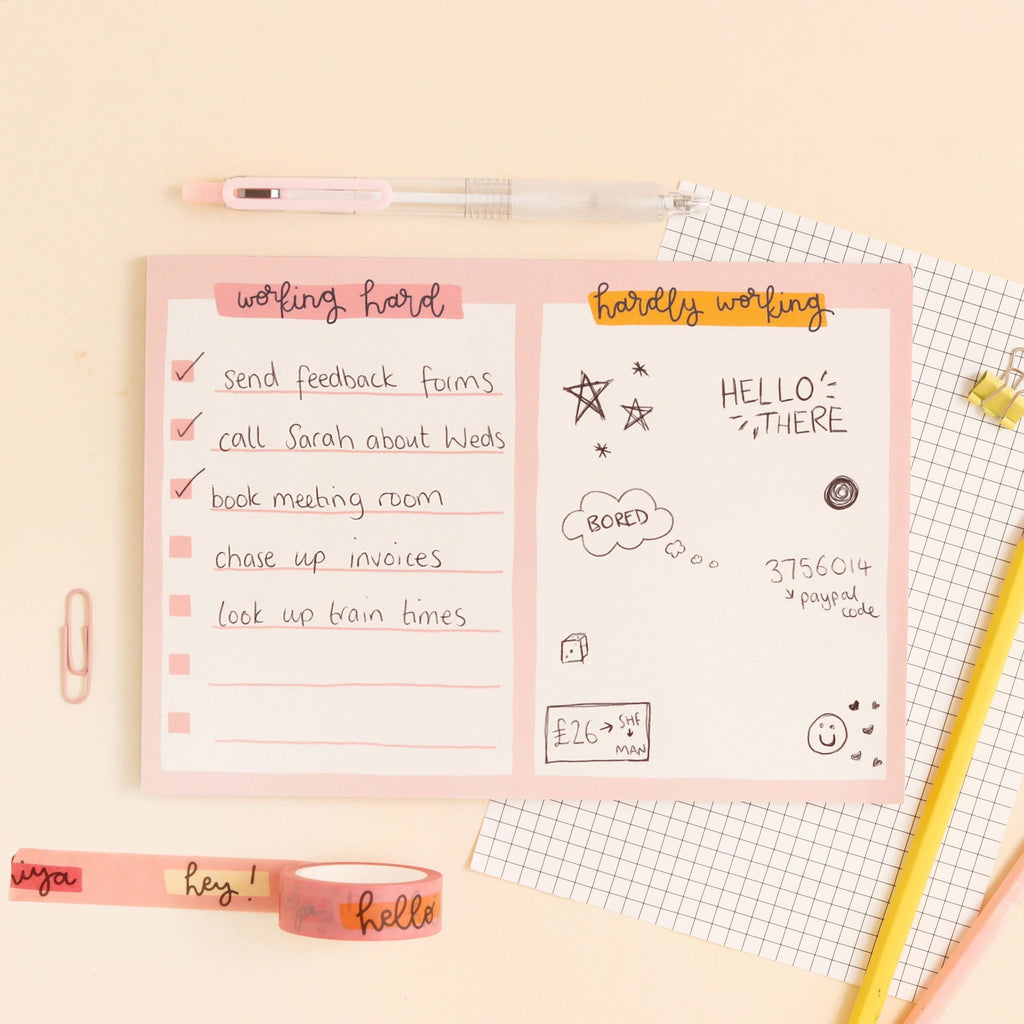 working hard
send feedback forms
call Sarah about Weds
book meeting room
chase up invoices
look up train times
hardly working
HELLO
THERE
BORED
3756014
paypal
code
£26 → SHF
MAN
hiya
hey!
hello